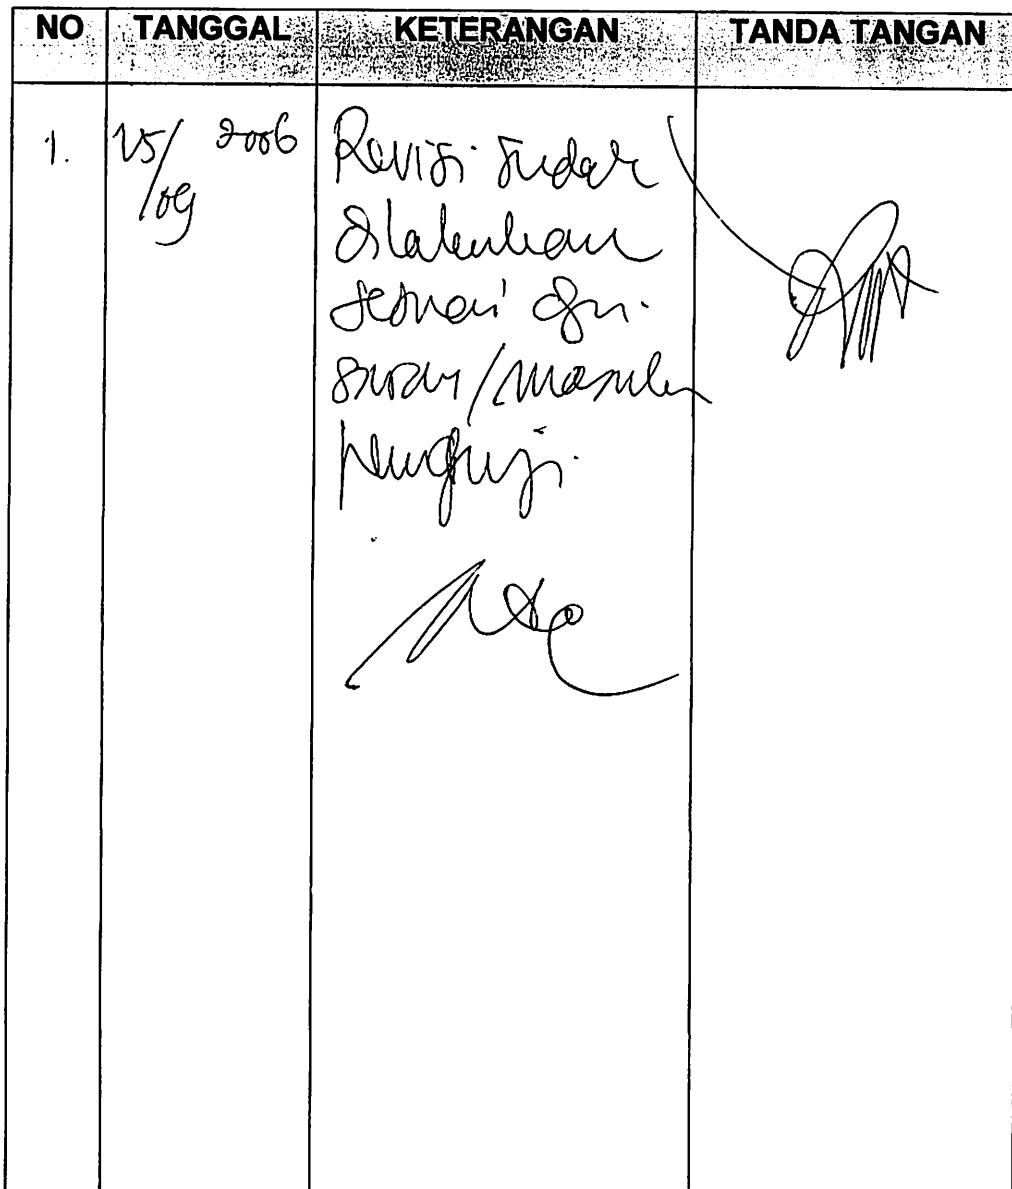 NO TANGGAL KETERANGAN TANDA TANGAN
1. 25/09 2006 Revisi sudah
dilakukan
sesuai dgn.
saran/masukan
penguji.